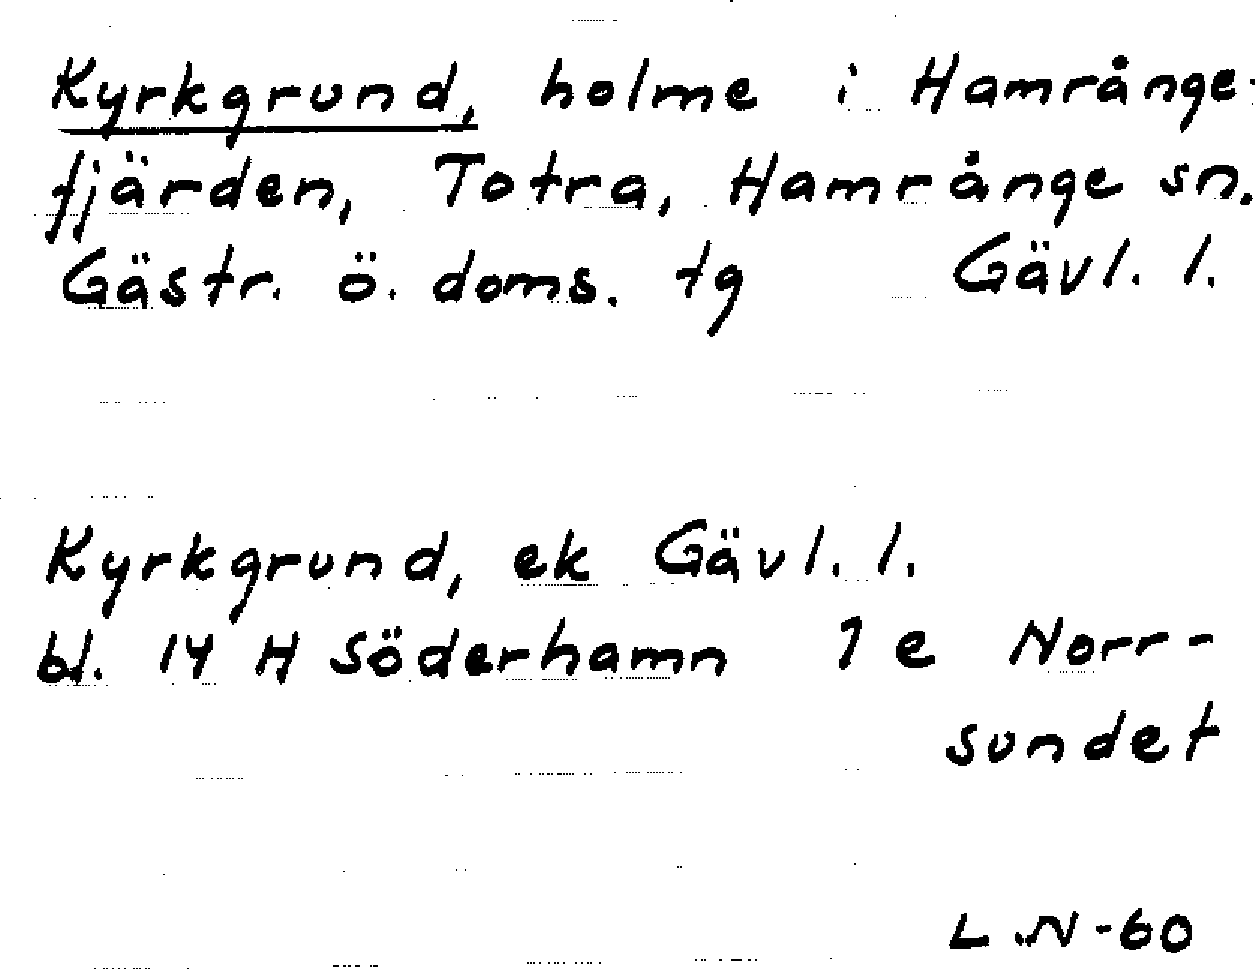 Kyrkgrund, holme i Hamrånge-
fjärden, Totra, Hamrånge sn.
Gästr. ö. doms. tg Gävl. l.
Kyrkgrund, ek Gävl. l.
bl. 14 H Söderhamn 1 e Norr-
sundet
L N-60